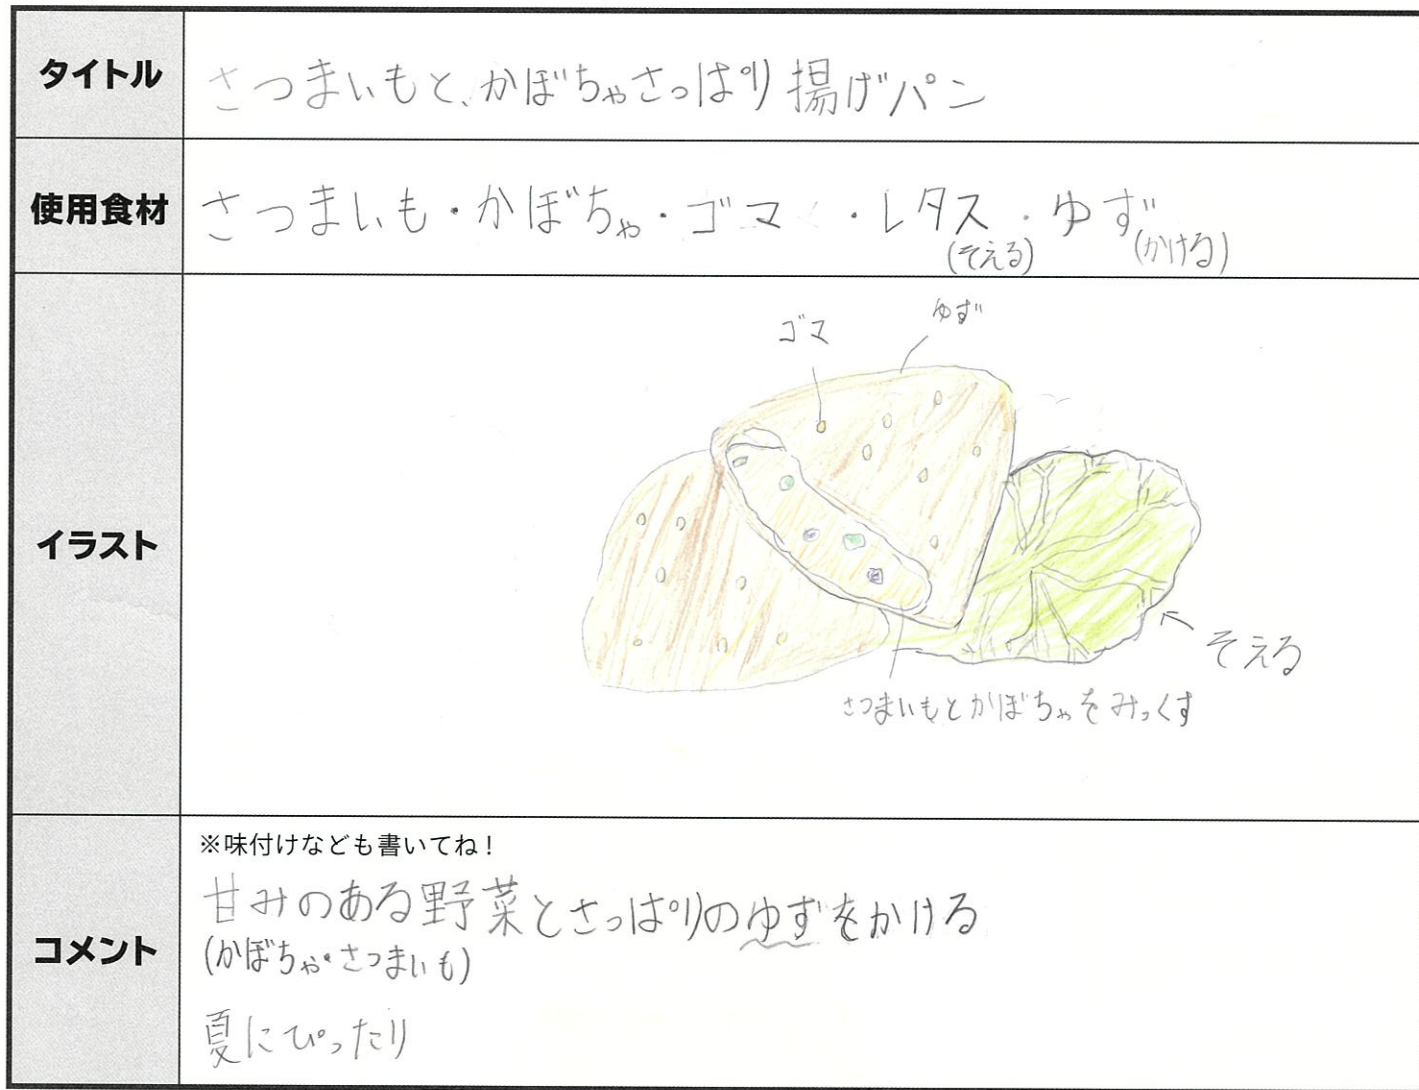 タイトル
さつまいもと、かぼちゃさっぱり揚げパン
使用食材
さつまいも・かぼちゃ・ゴマ・レタス・ゆず
(そえる) (かける)
イラスト
ゴマ
ゆず
そえる
さつまいもとかぼちゃをみっくす
コメント
※味付けなども書いてね!
甘みのある野菜とさっぱりのゆずをかける
(かぼちゃ・さつまいも)
夏にぴったり